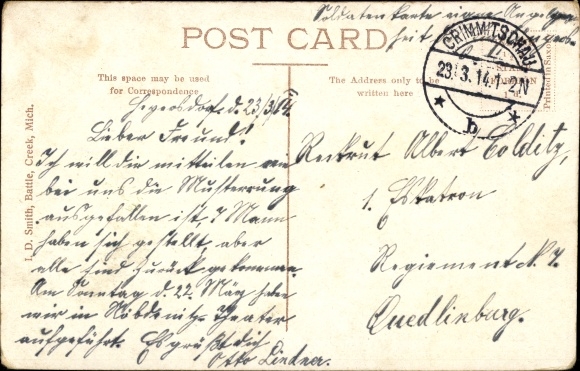 Soldatenkarte eigne Angelegen-
heit
POST CARD
CRIMMITSCHAU
23. 3. 14. 1-2N
* b *
This space may be used
for Correspondence
The Address only to be
written here
Printed in Saxony
I. D. Smith, Battle, Creek, Mich.
d. 23/3/14.
Lieber Freund!
Ich will dir mitteilen wie
bei uns die Musterung
ausgefallen ist, 7 Mann
haben sich gestellt, aber
alle sind zurück gekommen.
Am Sonntag d. 22. März haben
wir in Nöbdenitz Theater
aufgeführt. Es grüßt dich
Otto Lindner.
Reckrut Albert Colditz,
1. Eskatron
Regiement N. 7.
Quedlinburg.